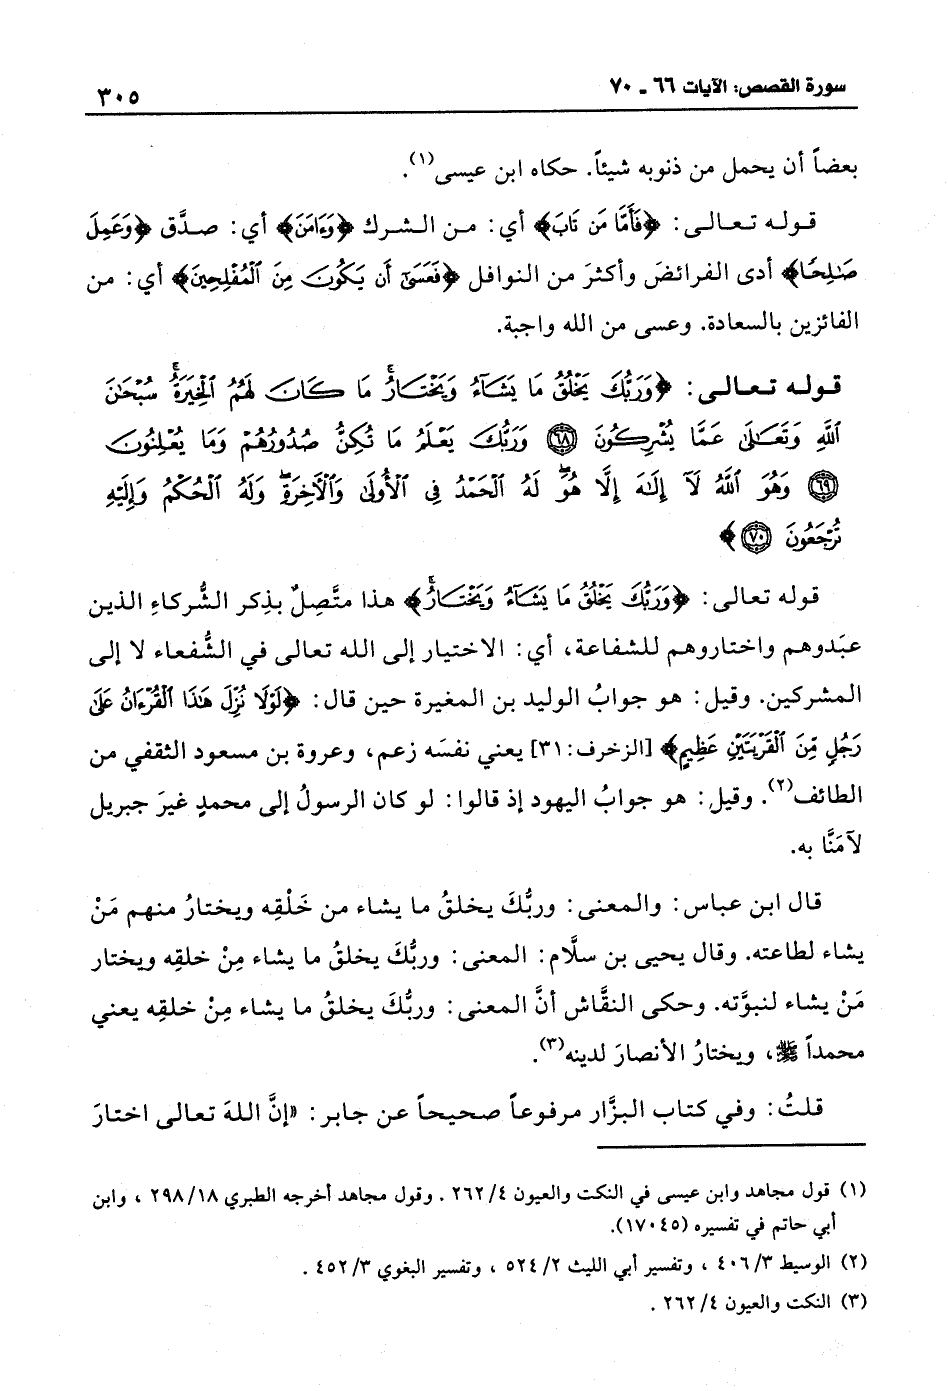 سورة القصص: الآيات ٦٦ ـ ٧٠
٣٠٥
بعضاً أن يحمل من ذنوبه شيئاً. حكاه ابن عيسى(١).
قوله تعالى: ﴿فَأَمَّا مَن تَابَ﴾ أي: من الشرك ﴿وَءَامَنَ﴾ أي: صدَّق ﴿وَعَمِلَ
صَٰلِحًا﴾ أدى الفرائضَ وأكثرَ من النوافل ﴿فَعَسَىٰٓ أَن يَكُونَ مِنَ الْمُفْلِحِينَ﴾ أي: من
الفائزين بالسعادة. وعسى من الله واجبة.
قوله تعالى: ﴿وَرَبُّكَ يَخْلُقُ مَا يَشَآءُ وَيَخْتَارُۗ مَا كَانَ لَهُمُ الْخِيَرَةُۚ سُبْحَٰنَ
اللَّهِ وَتَعَٰلَىٰ عَمَّا يُشْرِكُونَ ٦٨ وَرَبُّكَ يَعْلَمُ مَا تُكِنُّ صُدُورُهُمْ وَمَا يُعْلِنُونَ
٦٩ وَهُوَ اللَّهُ لَآ إِلَٰهَ إِلَّا هُوَۖ لَهُ الْحَمْدُ فِى الْأُولَىٰ وَالْأَخِرَةِۖ وَلَهُ الْحُكْمُ وَإِلَيْهِ
تُرْجَعُونَ ٧٠﴾
قوله تعالى: ﴿وَرَبُّكَ يَخْلُقُ مَا يَشَآءُ وَيَخْتَارُۗ﴾ هذا متَّصِلٌ بذِكر الشُّركاءِ الذين
عبَدوهم واختاروهم للشفاعة، أي: الاختيار إلى الله تعالى في الشُّفعاء لا إلى
المشركين. وقيل: هو جوابُ الوليد بن المغيرة حين قال: ﴿لَوْلَا نُزِّلَ هَٰذَا الْقُرْءَانُ عَلَىٰ
رَجُلٍ مِّنَ الْقَرْيَتَيْنِ عَظِيمٍ﴾ [الزخرف: ٣١] يعني نفسَه زعم، وعروة بن مسعود الثقفي من
الطائف(٢). وقيل: هو جوابُ اليهود إذ قالوا: لو كان الرسولُ إلى محمدٍ غيرَ جبريل
لآمَنَّا به.
قال ابن عباس: والمعنى: وربُّكَ يخلقُ ما يشاء من خَلْقِه ويختارُ منهم مَنْ
يشاء لطاعته. وقال يحيى بن سلَّام: المعنى: وربُّكَ يخلقُ ما يشاء مِنْ خلقِه ويختار
مَنْ يشاء لنبوَّته. وحكى النقَّاش أنَّ المعنى: وربُّكَ يخلقُ ما يشاء مِنْ خلقِه يعني
محمداً ﷺ، ويختارُ الأنصارَ لدينه(٣).
قلتُ: وفي كتاب البزَّار مرفوعاً صحيحاً عن جابر: «إنَّ اللهَ تعالى اختارَ
(١) قول مجاهد وابن عيسى في النكت والعيون ٤/ ٢٦٢ . وقول مجاهد أخرجه الطبري ١٨/ ٢٩٨ ، وابن
أبي حاتم في تفسيره (١٧٠٤٥).
(٢) الوسيط ٣/ ٤٠٦ ، وتفسير أبي الليث ٢/ ٥٢٤ ، وتفسير البغوي ٣/ ٤٥٢ .
(٣) النكت والعيون ٤/ ٢٦٢ .